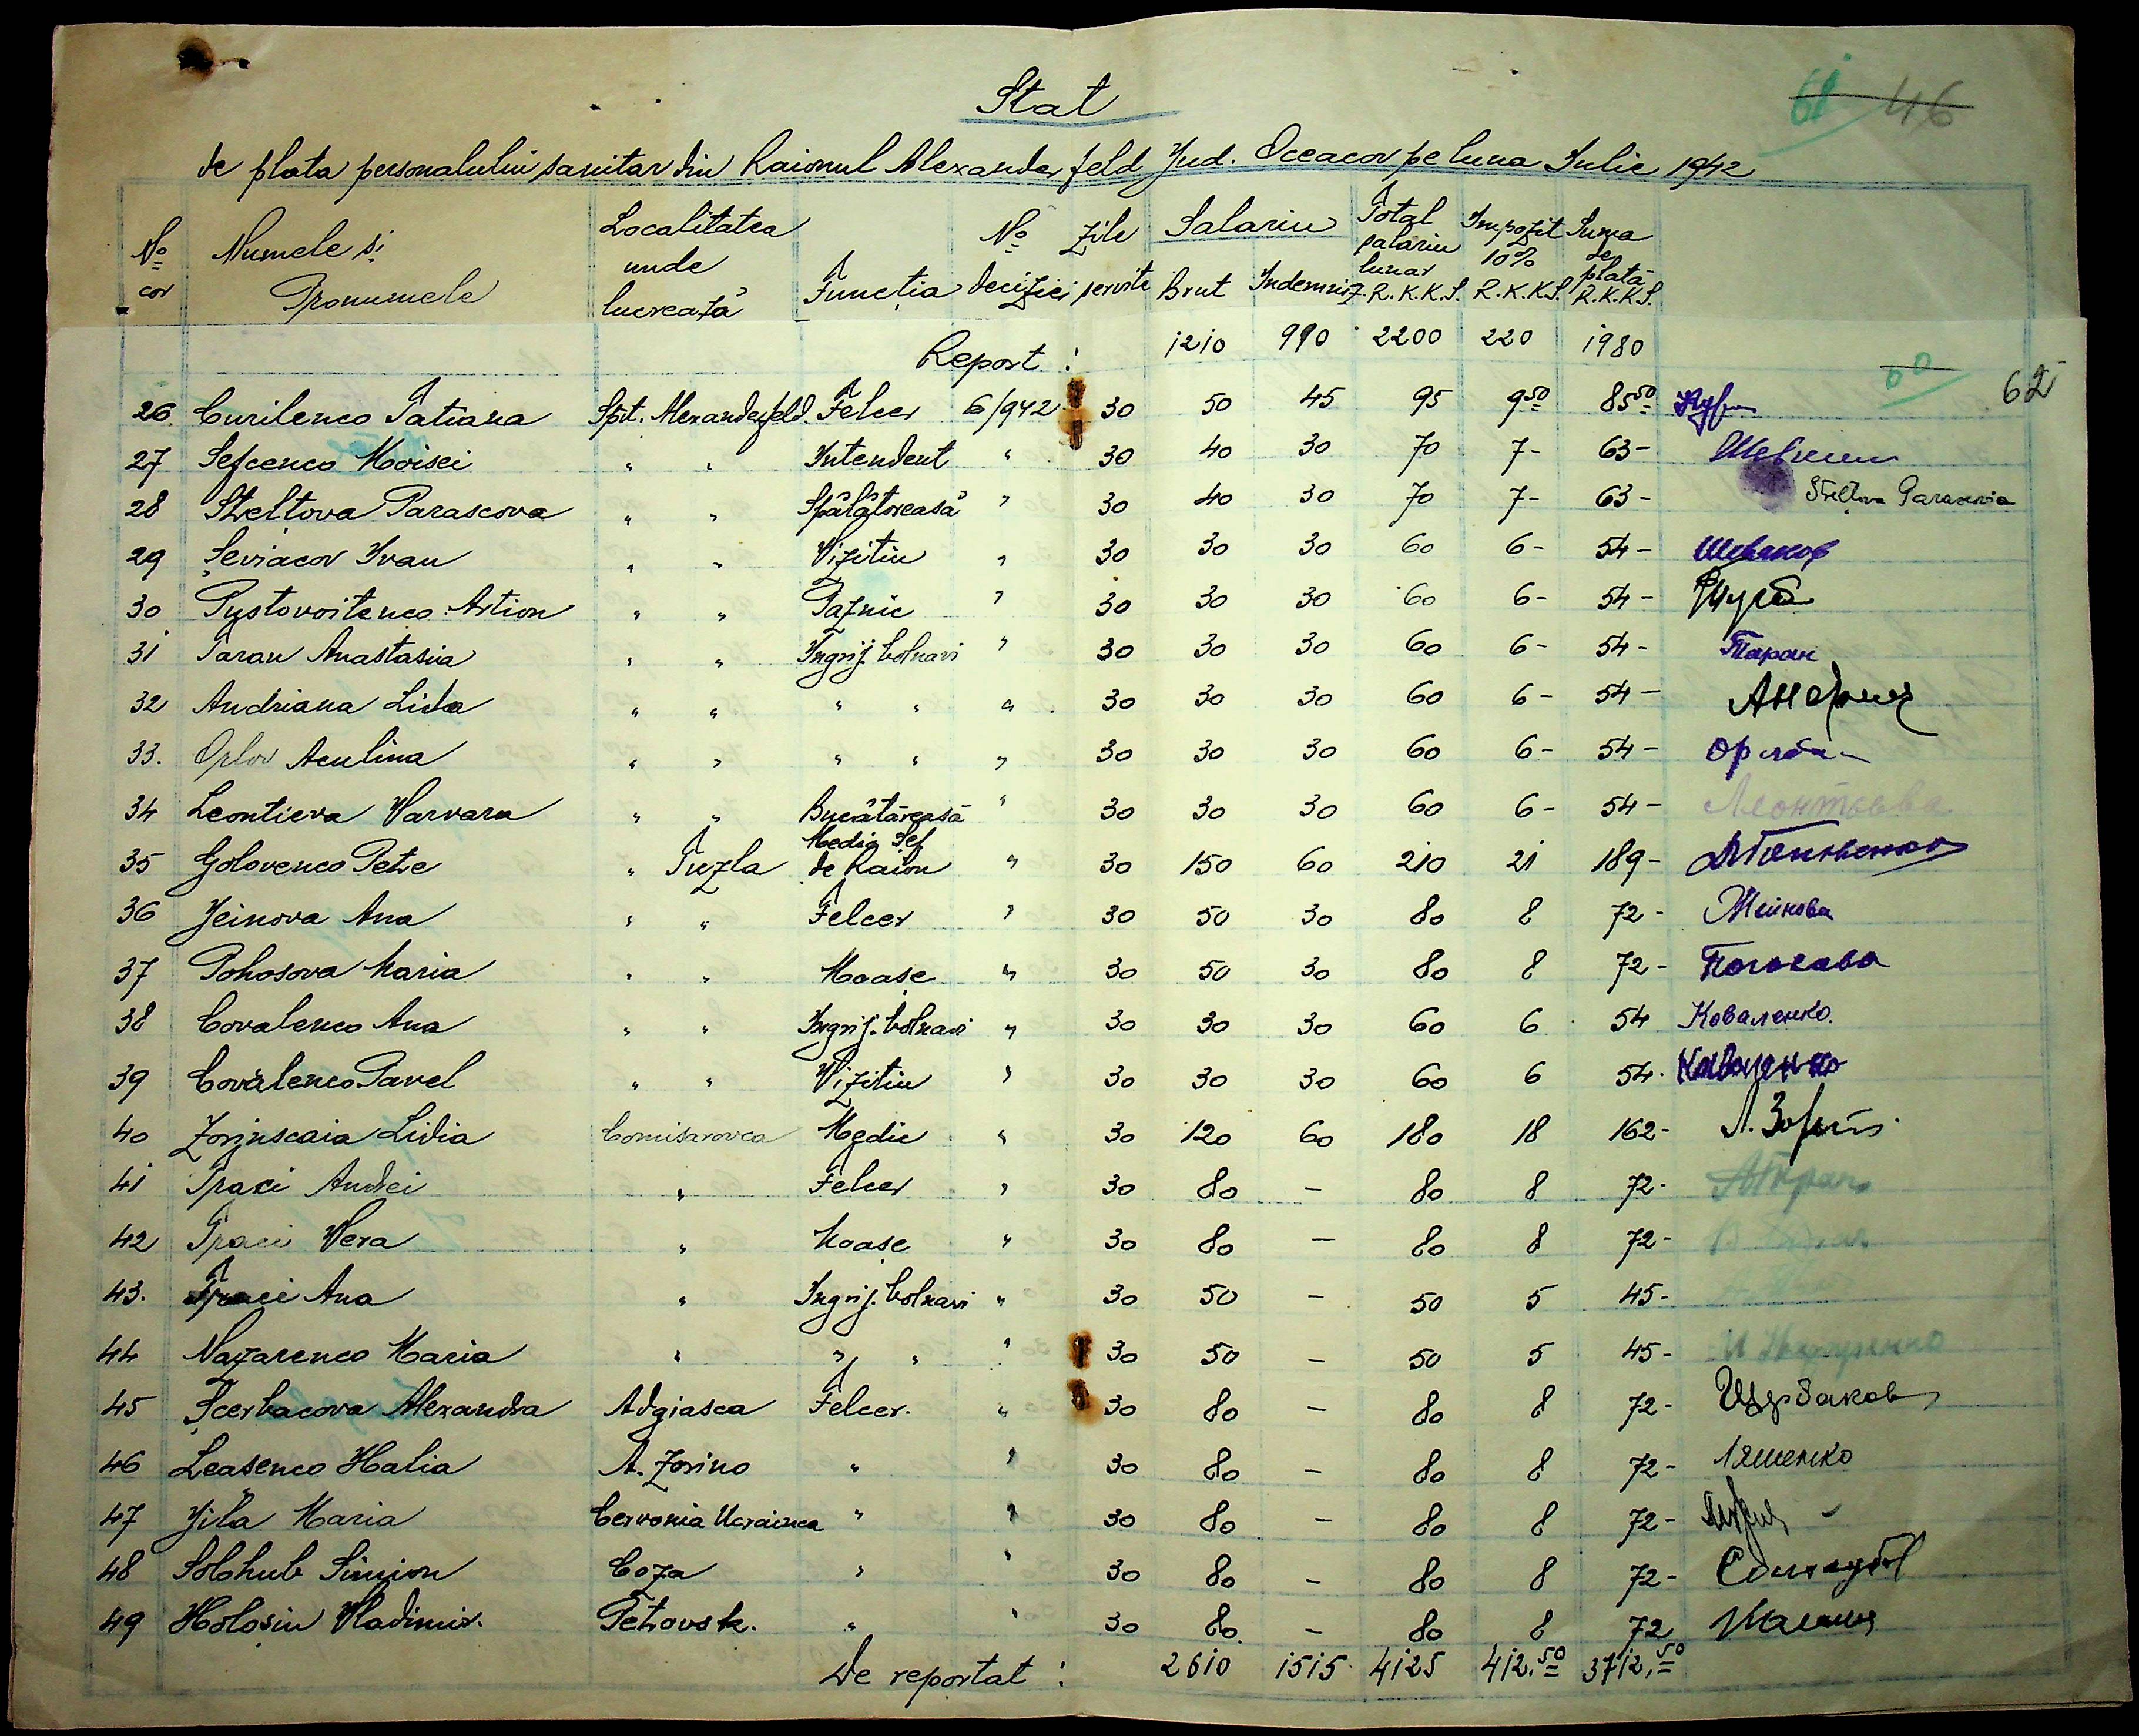 61 46
Stat
de plata personalului sanitar din Raionul Alexanderfeld Jud. Oceacov pe luna Iulie 1942
No cor Numele și Pronumele Localitatea unde lucrează Funcția No deciziei Zile servite Salariu Brut Indemniz. Total salariu lunar R.K.K.S. Impozit 10% R.K.K.S. Suma de plată R.K.K.S.
Report: 1210 990 2200 220 1980
62
26 Curilenco Tatiana Spit. Alexanderfeld. Felcer 6/942 30 50 45 95 950 8550
27 Sefcenco Moisei " " Intendent " 30 40 30 70 7- 63-
28 Steltova Parascova " " Spălătoreasă " 30 40 30 70 7- 63- Steltova Parascovia
29 Șeviacov Ivan " " Vizitiu " 30 30 30 60 6- 54- Шевяков
30 Pustovoitenco Artion " " Paznic " 30 30 30 60 6- 54-
31 Taran Anastasia " " Ingrij. bolnavi " 30 30 30 60 6- 54- Таран
32 Andriana Lida " " " " " 30 30 30 60 6- 54-
33. Orlov Aculina " " " " " 30 30 30 60 6- 54-
34 Leontieva Varvara " " Bucătăreasă " 30 30 30 60 6- 54- Леонтьева
35 Golovenco Petre " Tuzla Medic Șef de Raion " 30 150 60 210 21 189-
36 Jeinova Ana " " Felcer " 30 50 30 80 8 72- Жейнова
37 Pohosova Maria " " Moașe " 30 50 30 80 8 72- Погосава
38 Covalenco Ana " " Ingrij. bolnavi " 30 30 30 60 6 54 Коваленко.
39 Covalenco Pavel " " Vizitiu " 30 30 30 60 6 54. Коваленко
40 Zorjnscaia Lidia Comisarovca Medic " 30 120 60 180 18 162-
41 Traci Andrei " Felcer " 30 80 - 80 8 72-
42 Traci Vera " Moașe " 30 80 - 80 8 72-
43. Traci Ana " Ingrij. bolnavi " 30 50 - 50 5 45-
44 Nazarenco Maria " " " " 30 50 - 50 5 45-
45 Șcerbacova Alexandra Adgiasca Felcer. " 30 80 - 80 8 72- Щербакова
46 Leașenco Halia A. Zorino " " 30 80 - 80 8 72- Ляшенко
47 Jila Maria Cervonia Ucrainca " " 30 80 - 80 8 72-
48 Solohub Simion Coza " " 30 80 - 80 8 72- Сологуб
49 Holosin Vladimir. Petrovsk. " " 30 80. - 80 8 72
De reportat: 2610 1515 4125 412,50 3712,50